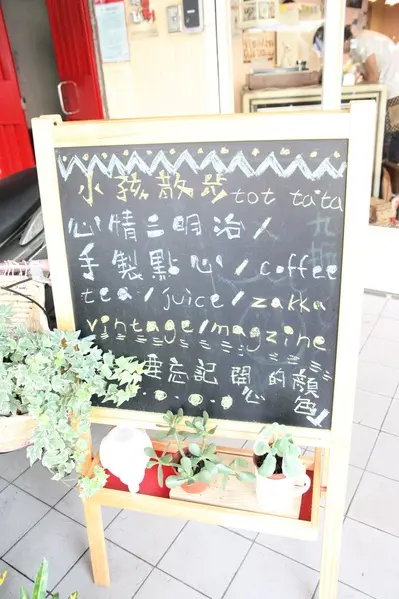 小孩散步 tot ta'ta
心情三明治/
手製點心/coffee
tea/juice/zakka
vintage/magzine
忘記開心的顏色